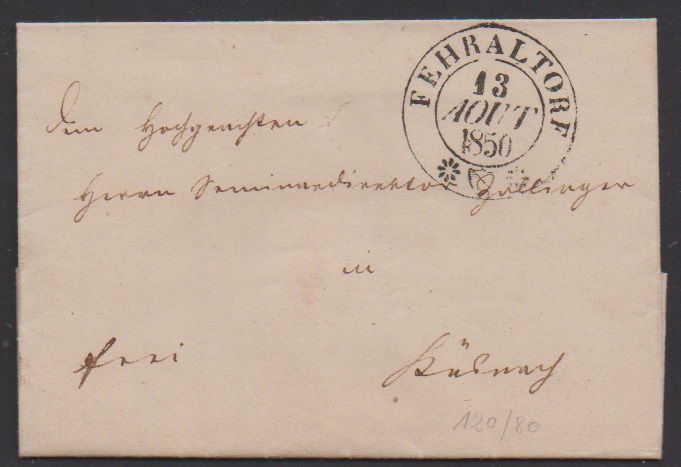 FEHRALTORF
13
AOUT
1850
Dem Hochgeachten
Herrn Seminardirektor Zollinger
in
frei
Küsnach
120/80